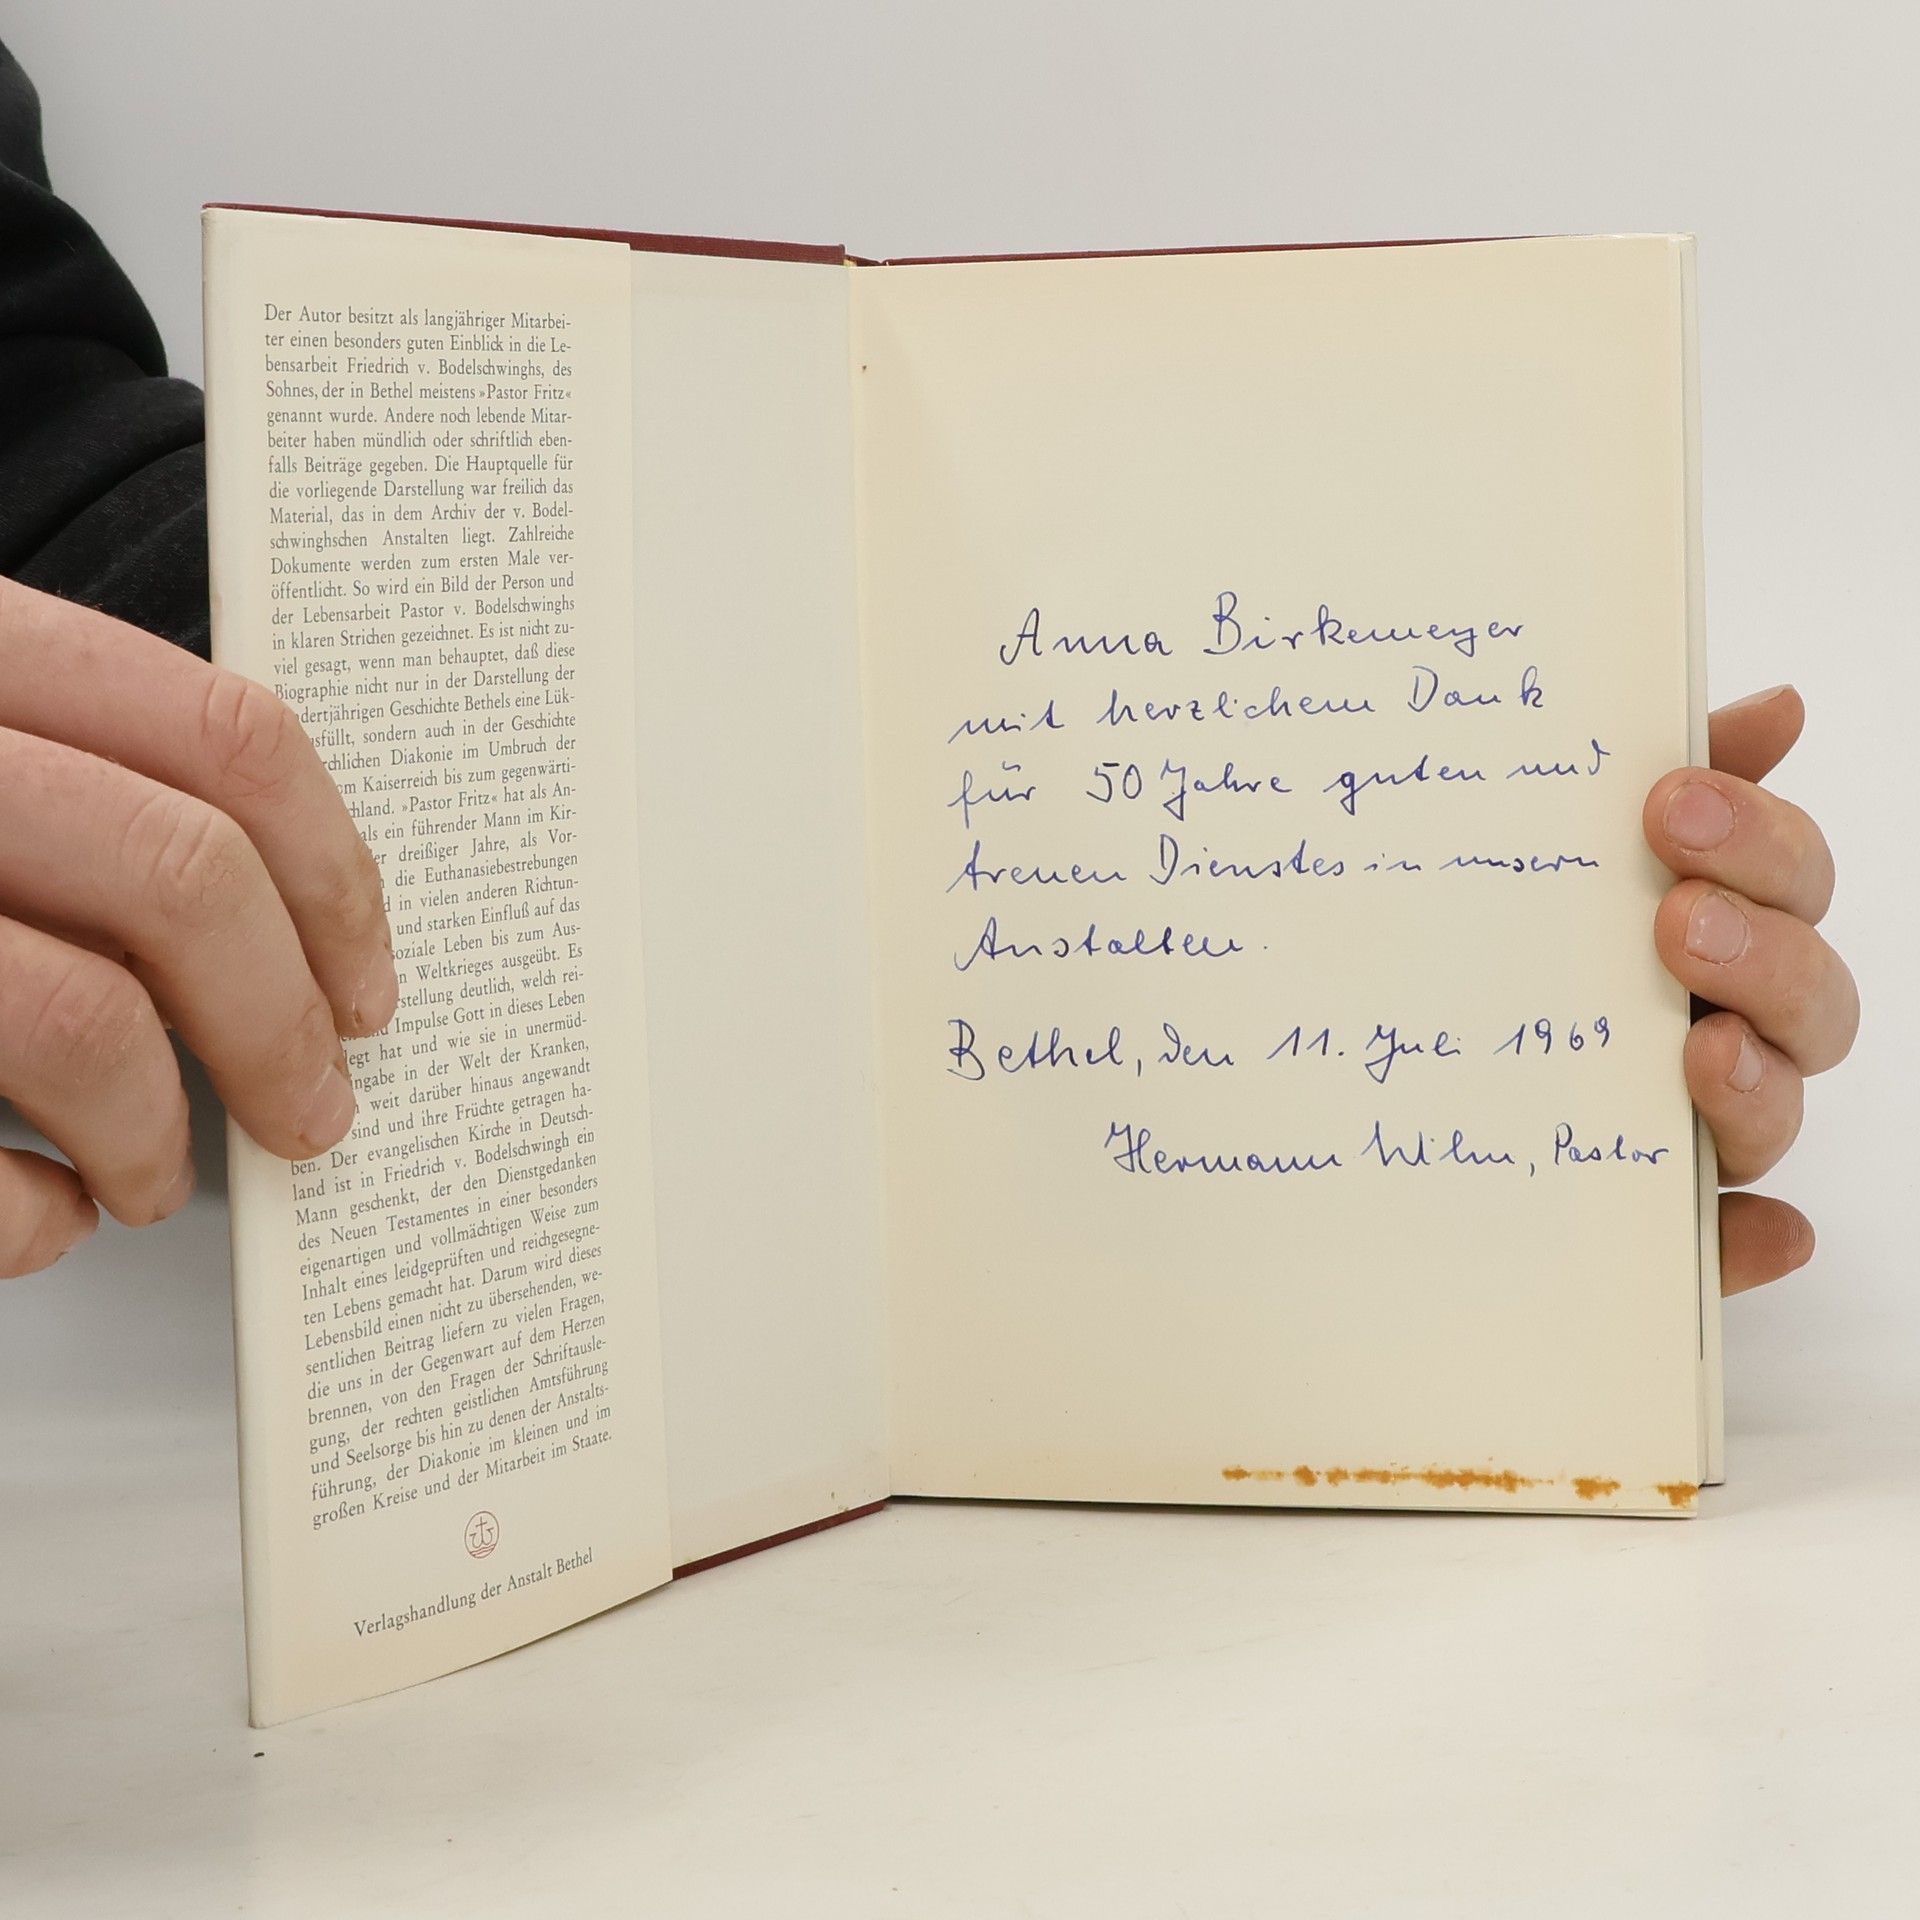 Der Autor besitzt als langjähriger Mitarbei-
ter einen besonders guten Einblick in die Le-
bensarbeit Friedrich v. Bodelschwinghs, des
Sohnes, der in Bethel meistens »Pastor Fritz«
genannt wurde. Andere noch lebende Mitar-
beiter haben mündlich oder schriftlich eben-
falls Beiträge gegeben. Die Hauptquelle für
die vorliegende Darstellung war freilich das
Material, das in dem Archiv der v. Bodel-
schwinghschen Anstalten liegt. Zahlreiche
Dokumente werden zum ersten Male ver-
öffentlicht. So wird ein Bild der Person und
der Lebensarbeit Pastor v. Bodelschwinghs
in klaren Strichen gezeichnet. Es ist nicht zu-
viel gesagt, wenn man behauptet, daß diese
Biographie nicht nur in der Darstellung der
dertjährigen Geschichte Bethels eine Lük-
sfüllt, sondern auch in der Geschichte
rchlichen Diakonie im Umbruch der
om Kaiserreich bis zum gegenwärti-
chland. »Pastor Fritz« hat als An-
als ein führender Mann im Kir-
er dreißiger Jahre, als Vor-
die Euthanasiebestrebungen
d in vielen anderen Richtun-
und starken Einfluß auf das
soziale Leben bis zum Aus-
n Weltkrieges ausgeübt. Es
rstellung deutlich, welch rei-
nd Impulse Gott in dieses Leben
legt hat und wie sie in unermüd-
ingabe in der Welt der Kranken,
weit darüber hinaus angewandt
sind und ihre Früchte getragen ha-
ben. Der evangelischen Kirche in Deutsch-
land ist in Friedrich v. Bodelschwingh ein
Mann geschenkt, der den Dienstgedanken
des Neuen Testamentes in einer besonders
eigenartigen und vollmächtigen Weise zum
Inhalt eines leidgeprüften und reichgesegne-
ten Lebens gemacht hat. Darum wird dieses
Lebensbild einen nicht zu übersehenden, we-
sentlichen Beitrag liefern zu vielen Fragen,
die uns in der Gegenwart auf dem Herzen
brennen, von den Fragen der Schriftausle-
gung, der rechten geistlichen Amtsführung
und Seelsorge bis hin zu denen der Anstalts-
führung, der Diakonie im kleinen und im
großen Kreise und der Mitarbeit im Staate.
Verlagshandlung der Anstalt Bethel
Anna Birkemeyer
mit herzlichem Dank
für 50 Jahre guten und
treuen Dienstes in unsern
Anstalten.
Bethel, den 11. Juli 1969
Hermann Wilm, Pastor